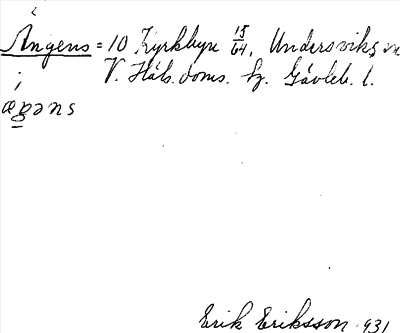 Ängens = 10 Kyrkbyn 15/64, Undersviks sn
V. Häls. doms. hz. Gävleb. l.
i
ægəns
Erik Eriksson 931